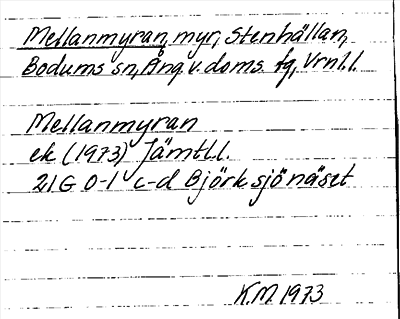 Mellanmyran, myr, Stenhällan,
Bodums sn, Ång. v. doms. fg, Vrnl. l.
Mellanmyran
ek (1973) Jämtl. l.
21G 0-1 c-d Björksjönäset
K.M. 1973